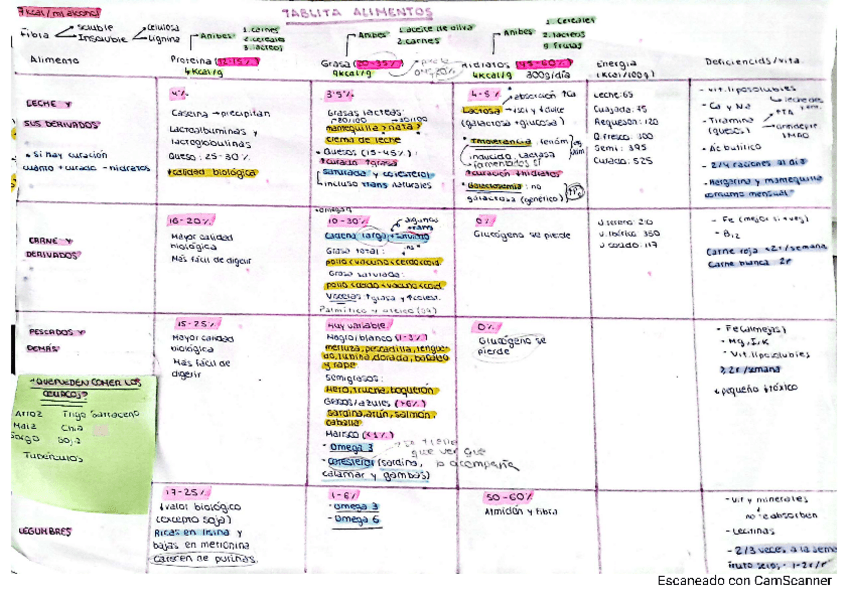 7kcal/ml alcohol
TABLITA ALIMENTOS
Fibra
Soluble
Insoluble
celulosa
Lignina
Anibes
1. carnes
2. cereales
3. lacteos
Anibes
1. aceite de oliva
2. carnes
Anibes
1. cereales
2. lacteos
3. frutas
Alimento
Proteina
4Kcal/g
Grasa (20-35%)
9kcal/g
Hidratos (45-60%)
4Kcal/g 300g/día
Energia
(Kcal/100g)
Deficiencias/vita.
LECHE Y
SUS DERIVADOS
• Si hay curación
cuanto + curado → -hidratos
4%
Caseina → precipitan
Lactoalbuminas y
lactoglobulinas
Queso: 25-30%
↑calidad biológica
3'5%
Grasas lacteas:
mantequilla y nata y
crema de leche
• Quesos (15-45%):
↑curado ↑grasa
saturada y colesterol
incluso trans naturales
4-5%
absorción ↑Ca
Lactosa
(galactosa + glucosa)
• Intolerancia:
inducido. Lactasa
fomentados sí
↑curación ↓hidratos
• Galactosemia: no
galactosa (genético)
Leche: 65
Cuajada: 75
Requeson: 120
Q.fresco: 300
Semi: 395
Curado: 525
- vit. liposolubles
- Ca y Na
- Tiramina
(quesos)
↑TA
IMAO
- Ac butilico
- 2/4 raciones al día
- Margarina y mantequilla
consumo mensual
CARNE Y
DERIVADOS
16-20%
Mayor calidad
biológica
Más fácil de digerir
10-30%
Cadena larga
Grasa total:
pollo<vacuno<cerdo<cord.
Grasa saturada:
pollo<cerdo<vacuno<cord.
Visceras ↑grasa y ↑colest.
0%
Glucógeno se pierde
J. serrano: 210
J. ibérico: 350
J. cocido: 117
- Fe
- B12
Carne roja <2r/semana
Carne blanca 2r
PESCADOS Y
DEMÁS
15-25%
Mayor calidad
biológica
Más fácil de
digerir
Muy variable.
Magro/blanco (1-3%)
merluza, pescadilla, lengua-
do, lubina, dorada, bacalao
y rape
Semigrasos:
Mero, trucha, boquerón
Grasos/azules (>6%)
Sardina, atún, salmón,
caballa
Marisco (<1%)
- Omega 3
- colesterol (sardina,
calamar y gambas)
que ver que
lo acompaña
0%
Glucógeno se
pierde
- Fe (almejas)
- Mg, I, K
- Vit. liposolubles
≥2r/semana
pequeño ↓tóxico
¿QUE PUEDEN COMER LOS
CELIACOS?
Arroz Trigo Sarraceno
Maiz Chia
Sorgo Soja
Tubérculos
LEGUMBRES
17-25%
↓valor biológico
(excepto soja)
Ricas en lisina y
bajas en metionina
Carecen de purinas.
1-6%
- Omega 3
- Omega 6
50-60%
Almidón y fibra
- vit y minerales
no se absorben
- Lectinas
- 2/3 veces a la sema
fruto seco:
Escaneado con CamScanner